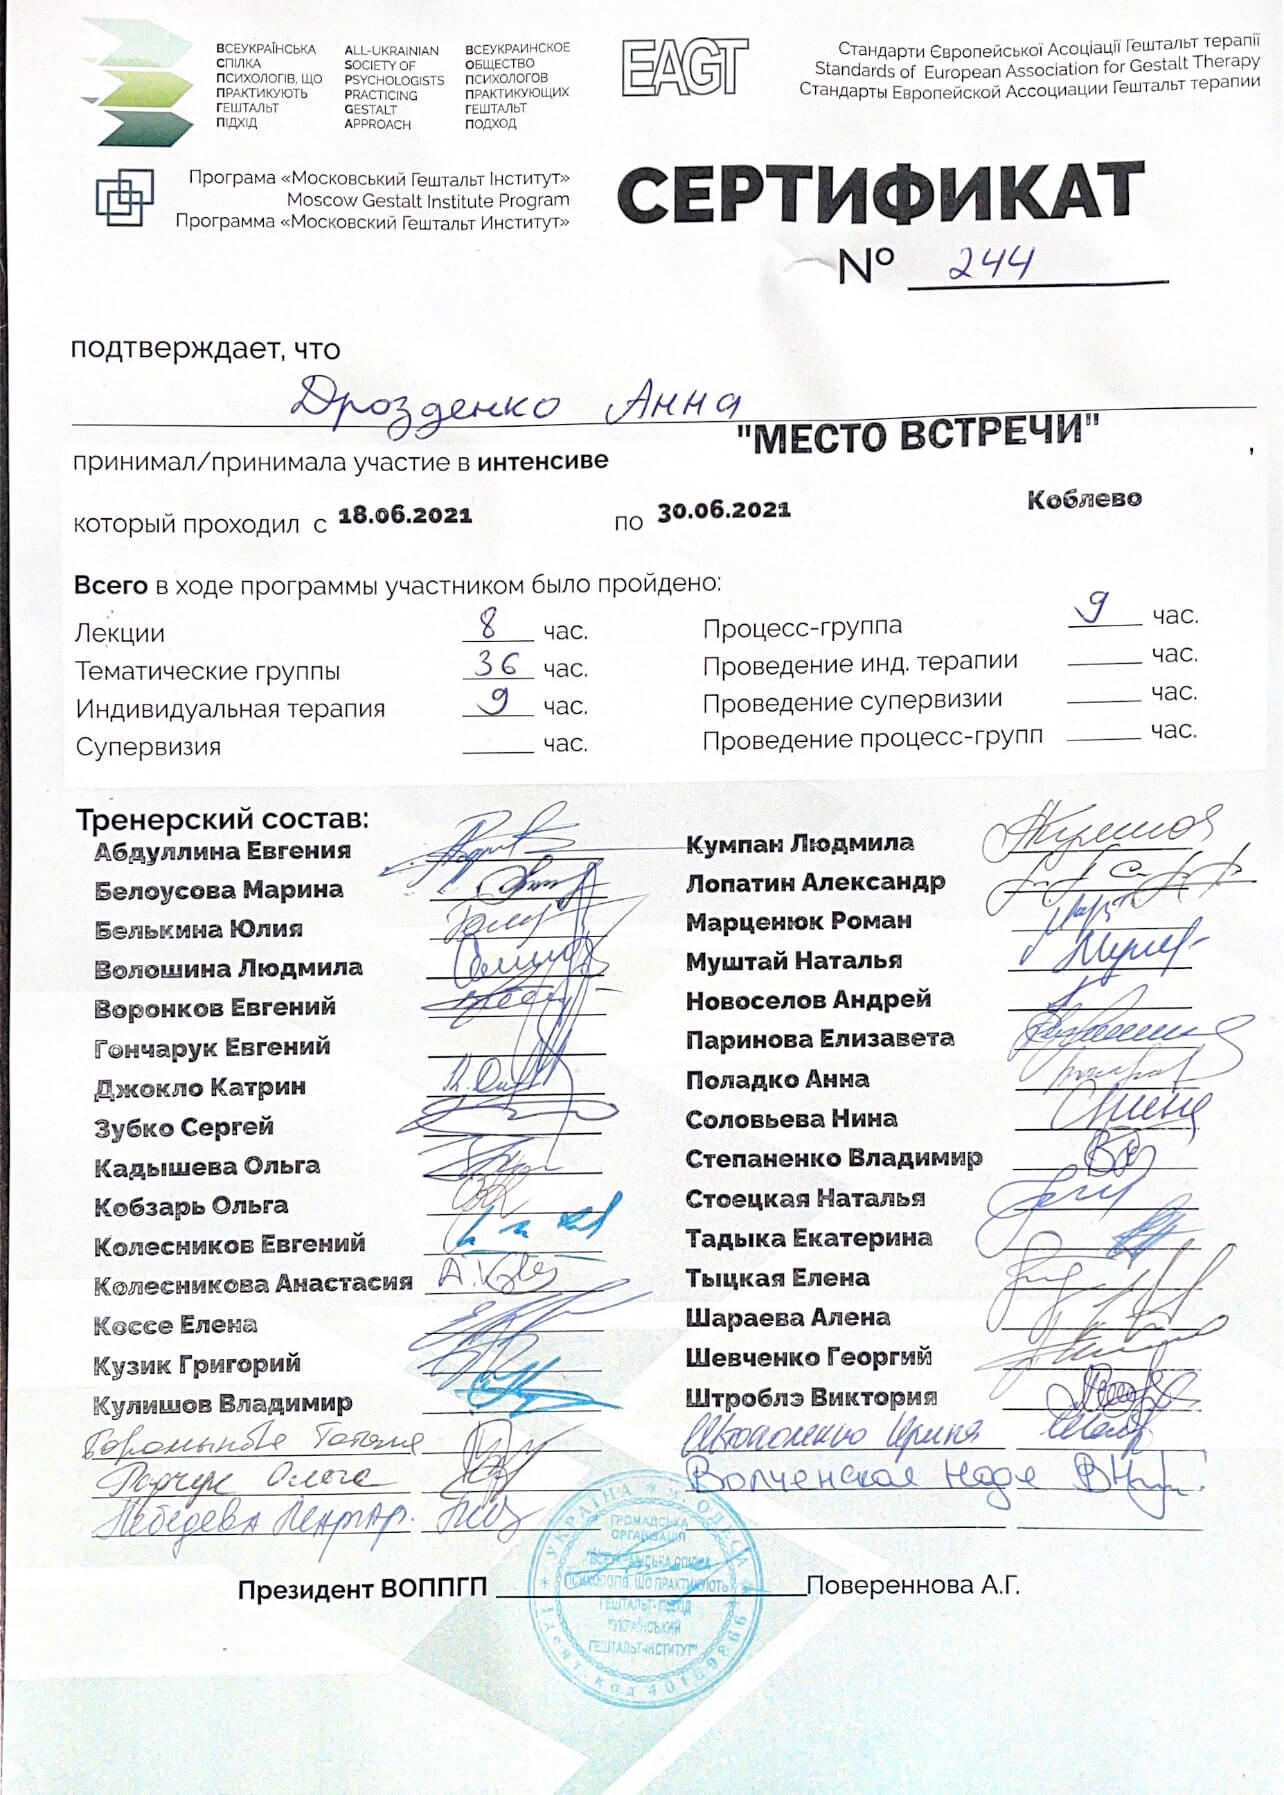 ВСЕУКРАЇНСЬКА
СПІЛКА
ПСИХОЛОГІВ, ЩО
ПРАКТИКУЮТЬ
ГЕШТАЛЬТ
ПІДХІД
ALL-UKRAINIAN
SOCIETY OF
PSYCHOLOGISTS
PRACTICING
GESTALT
APPROACH
ВСЕУКРАИНСКОЕ
ОБЩЕСТВО
ПСИХОЛОГОВ
ПРАКТИКУЮЩИХ
ГЕШТАЛЬТ
ПОДХОД
EAGT
Стандарти Європейської Асоціації Гештальт терапії
Standards of European Association for Gestalt Therapy
Стандарты Европейской Ассоциации Гештальт терапии
Програма «Московський Гештальт Інститут»
Moscow Gestalt Institute Program
Программа «Московский Гештальт Институт»
СЕРТИФИКАТ
№ 244
подтверждает, что
Дрозденко Анна
принимал/принимала участие в интенсиве "МЕСТО ВСТРЕЧИ" ,
который проходил с 18.06.2021 по 30.06.2021 Коблево
Всего в ходе программы участником было пройдено:
Лекции 8 час.
Тематические группы 36 час.
Индивидуальная терапия 9 час.
Супервизия час.
Процесс-группа 9 час.
Проведение инд. терапии час.
Проведение супервизии час.
Проведение процесс-групп час.
Тренерский состав:
Абдуллина Евгения
Белоусова Марина
Белькина Юлия
Волошина Людмила
Воронков Евгений
Гончарук Евгений
Джокло Катрин
Зубко Сергей
Кадышева Ольга
Кобзарь Ольга
Колесников Евгений
Колесникова Анастасия
Коссе Елена
Кузик Григорий
Кулишов Владимир
Ольга
Лебедева
Кумпан Людмила
Лопатин Александр
Марценюк Роман
Муштай Наталья
Новоселов Андрей
Паринова Елизавета
Поладко Анна
Соловьева Нина
Степаненко Владимир
Стоецкая Наталья
Тадыка Екатерина
Тыцкая Елена
Шараева Алена
Шевченко Георгий
Штроблэ Виктория
Ирина
Волченская Надя
Президент ВОППГП Повереннова А.Г.
УКРАЇНА * м.ОДЕСА
ГРОМАДСЬКА
ОРГАНІЗАЦІЯ
ПСИХОЛОГІВ, ЩО ПРАКТИКУЮТЬ
ГЕШТАЛЬТ-ПІДХІД
"УКРАЇНСЬКИЙ
ГЕШТАЛЬТ-ІНСТИТУТ"
Ідент. код